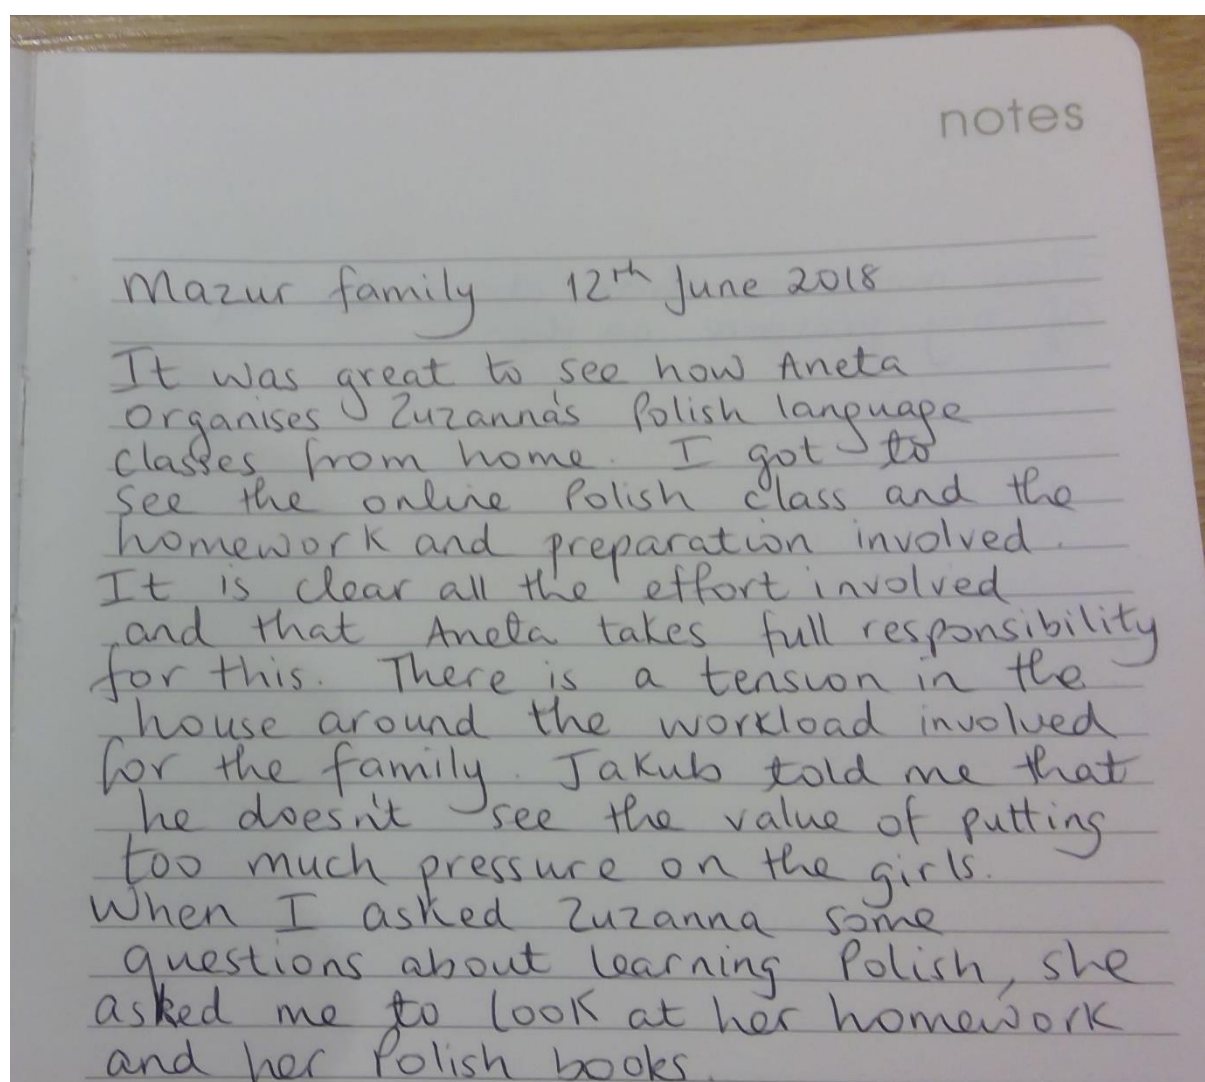 notes
Mazur family 12th June 2018
It was great to see how Aneta
organises Zuzanna's Polish language
classes from home. I got to
see the online Polish class and the
homework and preparation involved.
It is clear all the effort involved
and that Aneta takes full responsibility
for this. There is a tension in the
house around the workload involved
for the family. Jakub told me that
he doesn't see the value of putting
too much pressure on the girls.
When I asked Zuzanna some
questions about learning Polish, she
asked me to look at her homework
and her Polish books.